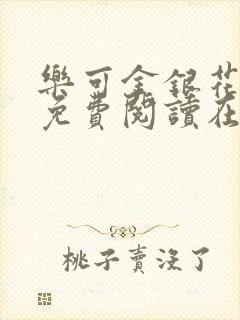 樂可金銀花
免費閱讀在
桃子賣沒了